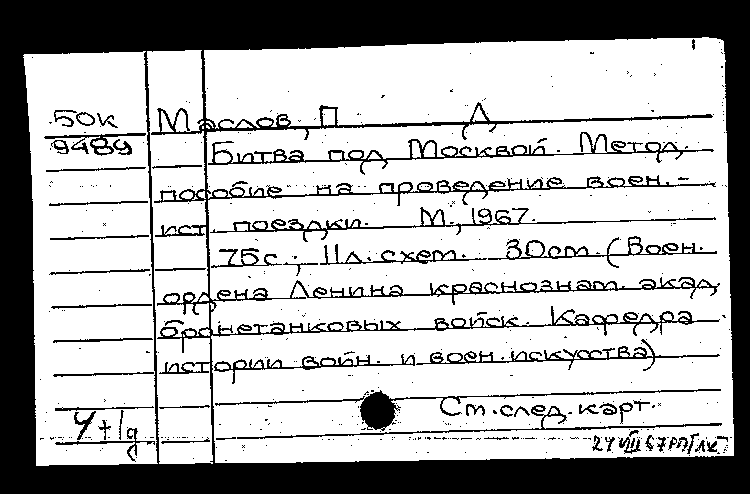 50к Маслов, П Д
9489 Битва под Москвой. Метод.
пособие на проведение воен.-
ист. поездки. М., 1967.
75с; 11л. схем. 30см. (Воен.
ордена Ленина краснознам. акад.
бронетанковых войск. Кафедра
истории войн. и воен. искусства)
Ст. след. карт.
4+1д
24 VIII 67